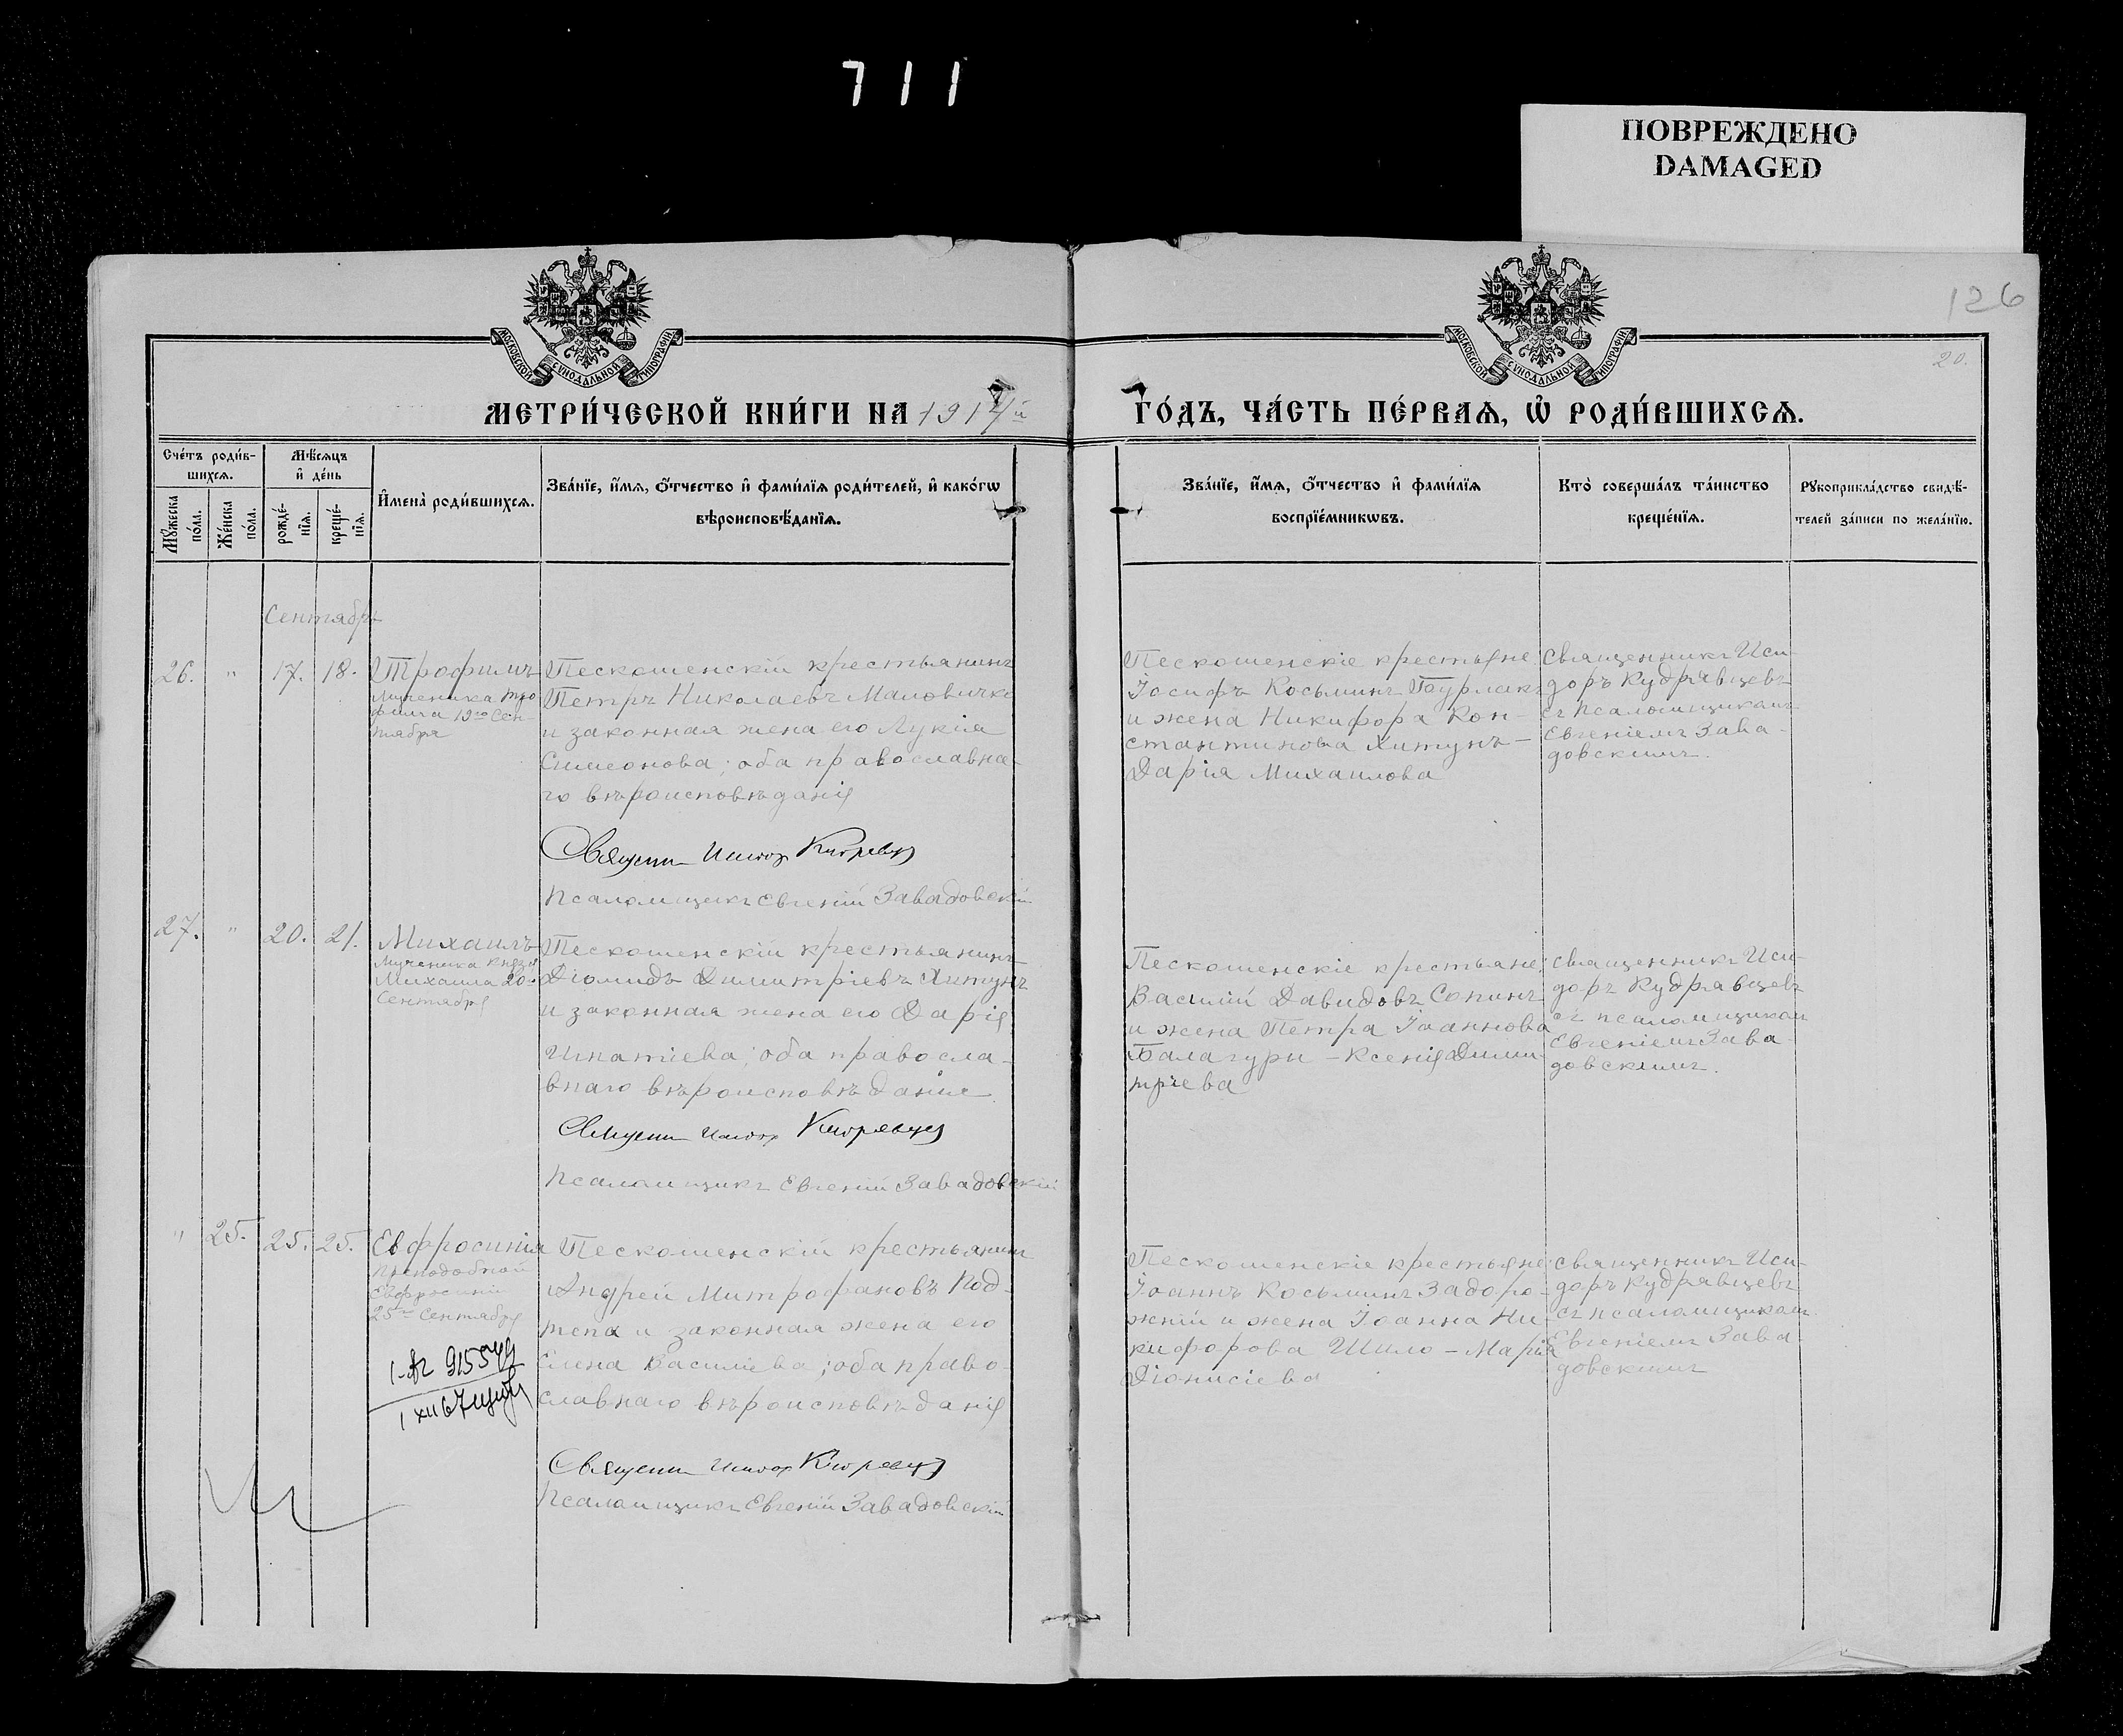 711
ПОВРЕЖДЕНО
DAMAGED
126
20.
МОСКОВСКОЙ СѴНОДАЛЬНОЙ ТИПОГРАФІИ.
МОСКОВСКОЙ СѴНОДАЛЬНОЙ ТИПОГРАФІИ.
МЕТРИ́ЧЕСКОЙ КНИ́ГИ НА 1914й
ГО́ДЪ, ЧА́СТЬ ПЕ́РВАѦ, Ѡ҆ РОДИ́ВШИХСѦ.
Сче́тъ роди́в-
шихсѧ.
Мꙋ́жеска по́ла.
Же́нска по́ла.
Мѣ́сѧцъ
и҆ де́нь
рожде́-
нїѧ.
креще́-
нїѧ.
И҆мена̀ роди́вшихсѧ.
Зва́нїе, и҆́мѧ, ѻ҆́тчество и҆ фами́лїѧ роди́телей, и҆ како́гѡ
вѣроисповѣ́данїѧ.
Зва́нїе, и҆́мѧ, ѻ҆́тчество и҆ фами́лїѧ
воспрїе́мникѡвъ.
Кто̀ соверша́лъ та́инство
креще́нїѧ.
Рꙋкоприкла́дство свидѣ́-
телей за́писи по жела́нїю.
Сентябрь
26. " 17. 18.
Трофимъ
Мученика Тро
фима 19го Сен-
тября
Пескошенскій крестьянинъ
Петръ Николаевъ Маловичко
и законная жена его Лукія
Симеонова; оба православна-
го вѣроисповѣданія
Священ Исидор Кудрявцев
Псаломщикъ Евгеній Завадовскій
Пескошенскіе крестьяне:
Іосифъ Косьминъ Бурлакъ
и жена Никифора Кон-
стантинова Хитунъ -
Дарія Михаилова
священникъ Иси-
доръ Кудрявцевъ
съ псаломщикомъ
Евгеніемъ Зава-
довскимъ.
27. " 20. 21.
Михаилъ
Мученика князя
Михаила 20го
Сентября
Пескошенскій крестьянинъ
Діомидъ Димитріевъ Хитунъ
и законная жена его Дарія
Игнатіева; оба правосла-
внаго вѣроисповѣданія
Священ Исидор Кудрявцев
Псаломщикъ Евгеній Завадовскій
Пескошенскіе крестьяне:
Василій Давидовъ Сопинъ
и жена Петра Іоаннова
Балагуры - Ксенія Дими-
тріева
священникъ Иси-
доръ Кудрявцевъ
съ псаломщиком
Евгеніемъ Зава-
довскимъ.
" 25. 25. 25.
Евфросинія
Преподобной
Евфросиніи
25го Сентября
Пескошенскій крестьянинъ
Андрей Митрофановъ Под-
тепа и законная жена его
Елена Василіева; оба право-
славнаго вѣроисповѣданія
Священ Исидор Кудрявцев
Псаломщикъ Евгеній Завадовскій
Пескошенскіе крестьяне:
Іоаннъ Косьминъ Задоро-
жній и жена Іоанна Ни-
кифорова Шило - Марія
Діонисіева
священникъ Иси-
доръ Кудрявцевъ
съ псаломщикомъ
Евгеніемъ Зава-
довскимъ